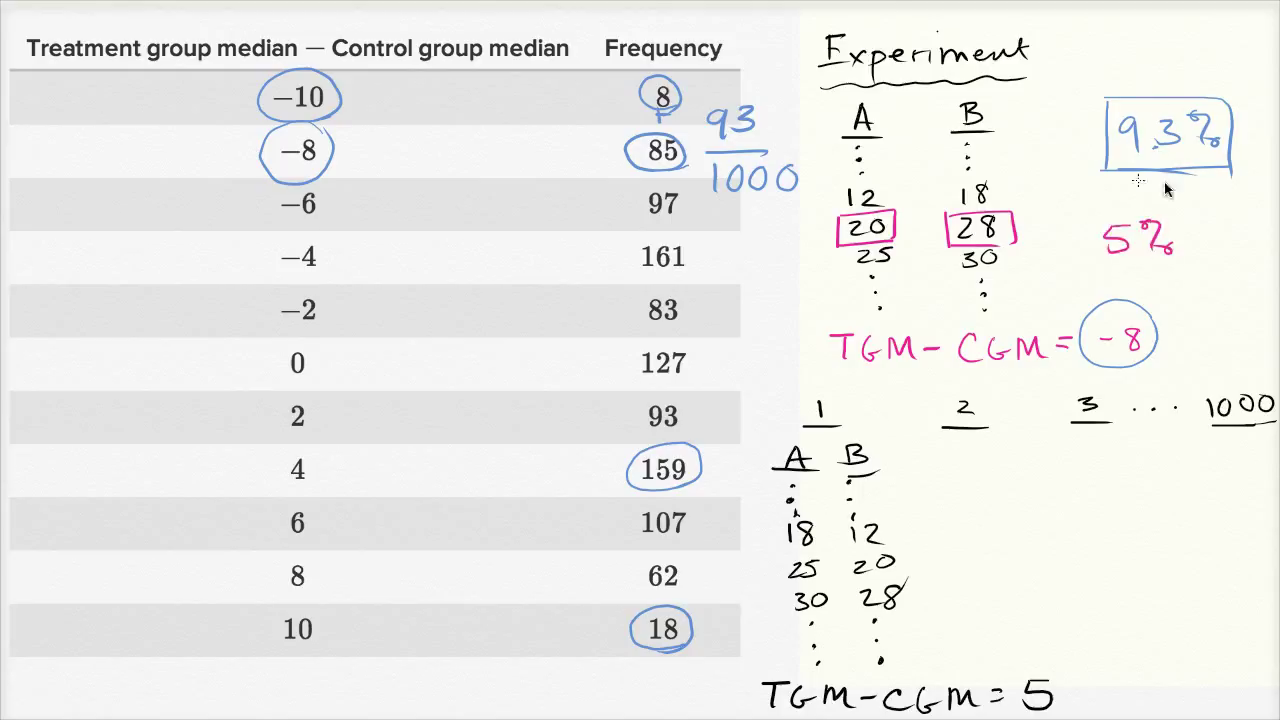 Treatment group median — Control group median Frequency
−10 8
−8 85
−6 97
−4 161
−2 83
0 127
2 93
4 159
6 107
8 62
10 18
93
1000
Experiment
A B
12 18
20 28
25 30
TGM - CGM = -8
9.3%
5%
1 2 3 ... 1000
A B
18 12
25 20
30 28
TGM - CGM = 5